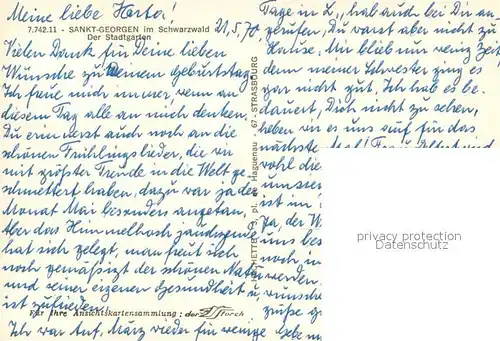 Meine liebe Herta!
7.742.11 - SANKT-GEORGEN im Schwarzwald
Der Stadtgarten
21.5.70
Vielen Dank für Deine lieben
Wünsche zu Deinem Geburtstag
Ich freue mich immer, wenn an
diesem Tag alle an mich denken.
Du erinnerst auch noch an die
schönen Frühlingslieder, die wir
mit größter Freude in die Welt ge-
schmettert haben, dazu war ja der
Monat Mai besonders angetan.
Aber das Himmelhoch jauchzende
hat sich gelegt, man freut sich
noch gemäßigt der schönen Natur
und seiner eigenen Gesundheit u.
ist zufrieden.
Für Ihre Ansichtskartensammlung: der Storch
Ich war Anf. März wieder für wenige
Tage in L., hab auch bei Dir an-
gerufen, Du warst aber nicht zu
Hause. Mir blieb nur wenig Zeit
denn meiner Schwester ging es
gar nicht gut. Ich hab es be-
dauert, Dich nicht zu sehen,
heben wir es uns auf für das
nächste
wohl die
unsere
ist
Ja, der W
uns be
noch in
werden
wünsche
Grüße
Gebe m
67 - STRASBOURG
pl. de Haguenau
Privatsphaere
Datenschutz